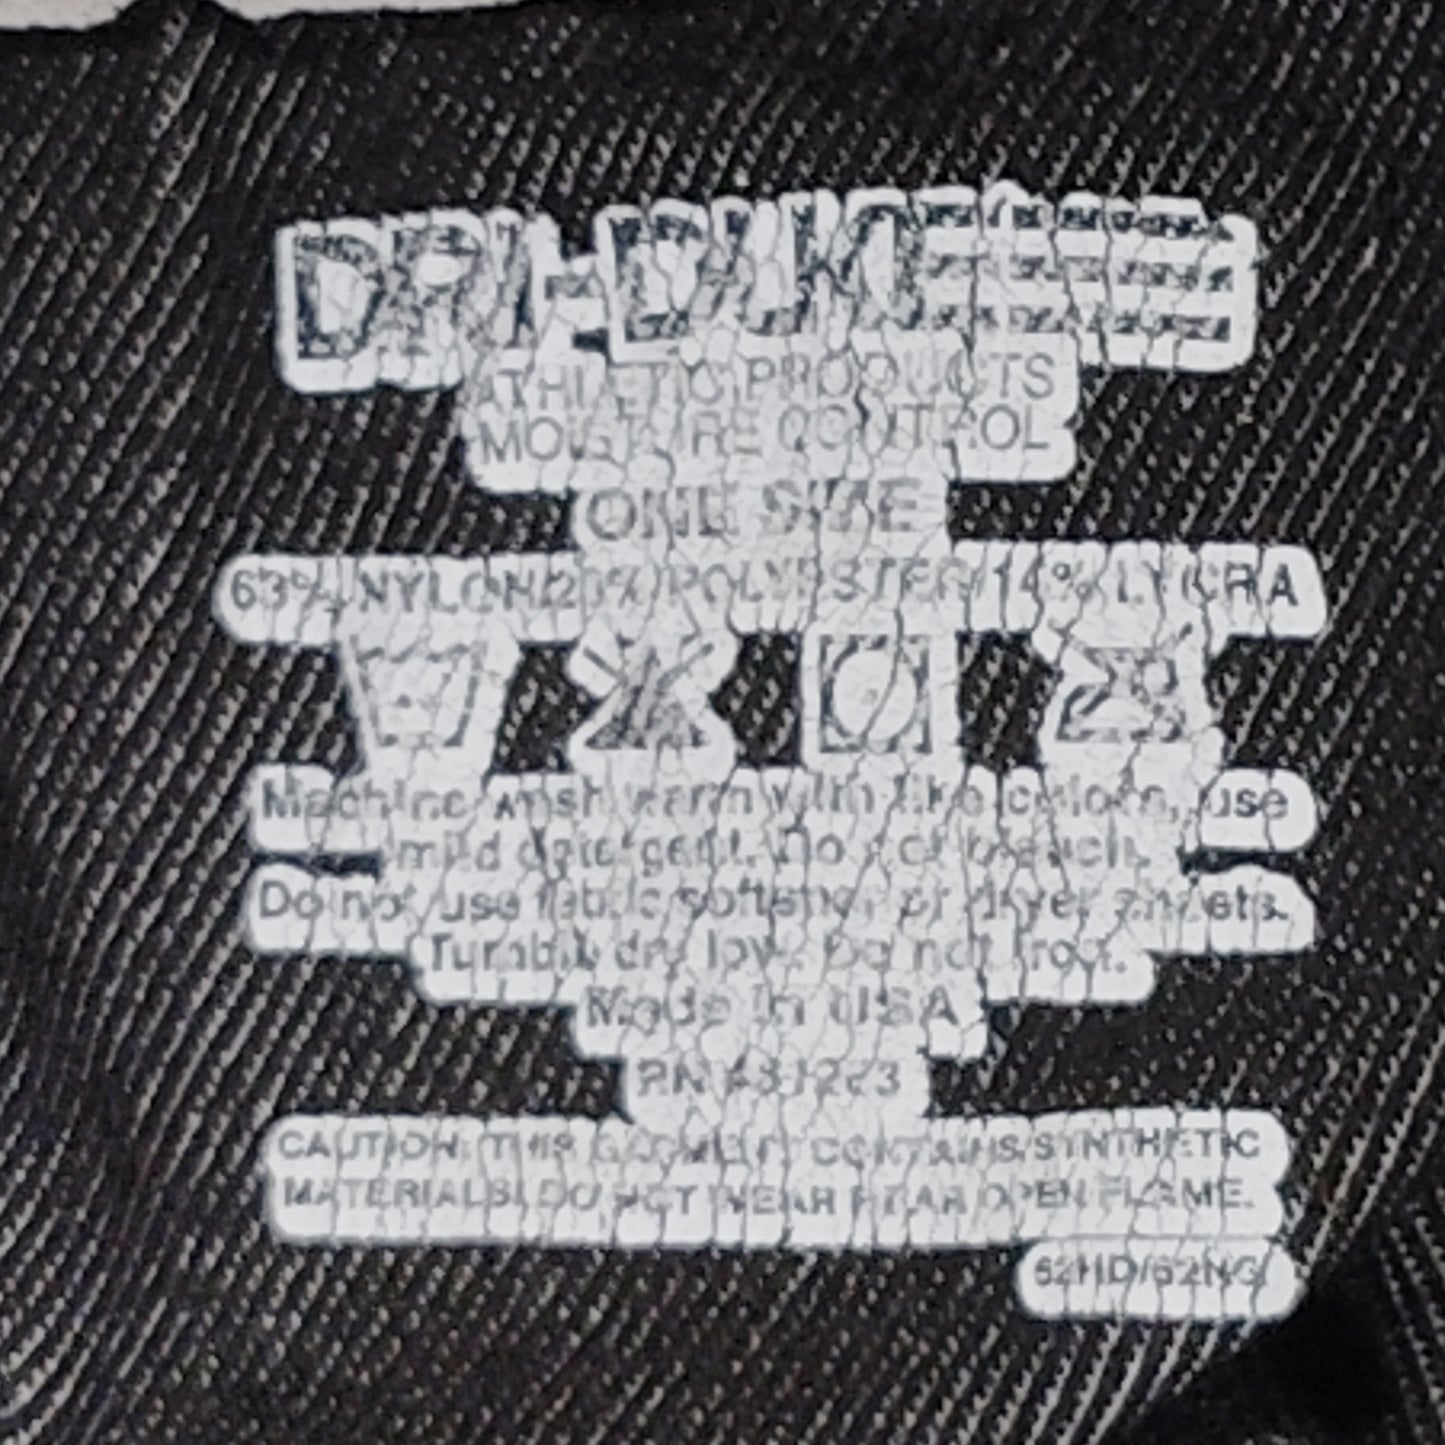 DRI-DUKE
ATHLETIC PRODUCTS
MOISTURE CONTROL
ONE SIZE
63% NYLON/ POLYESTER/14% LYCRA
Machine wash warm with like colors, use
mild detergent. Do not bleach.
Do not use fabric softener or dryer sheets.
Tumble dry low. Do not iron.
Made in USA
RN
CAUTION: THIS GARMENT CONTAINS SYNTHETIC
MATERIALS. DO NOT WEAR NEAR OPEN FLAME.
62HD/62NG